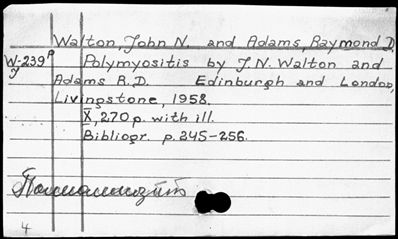 Walton, John N. and Adams, Raymond D.
W-239 p Polymyositis by J.N. Walton and
y Adams R.D. Edinburgh and London,
Livingstone, 1958.
X, 270 p. with ill.
Bibliogr. p. 245-256.
Полимиозит
4